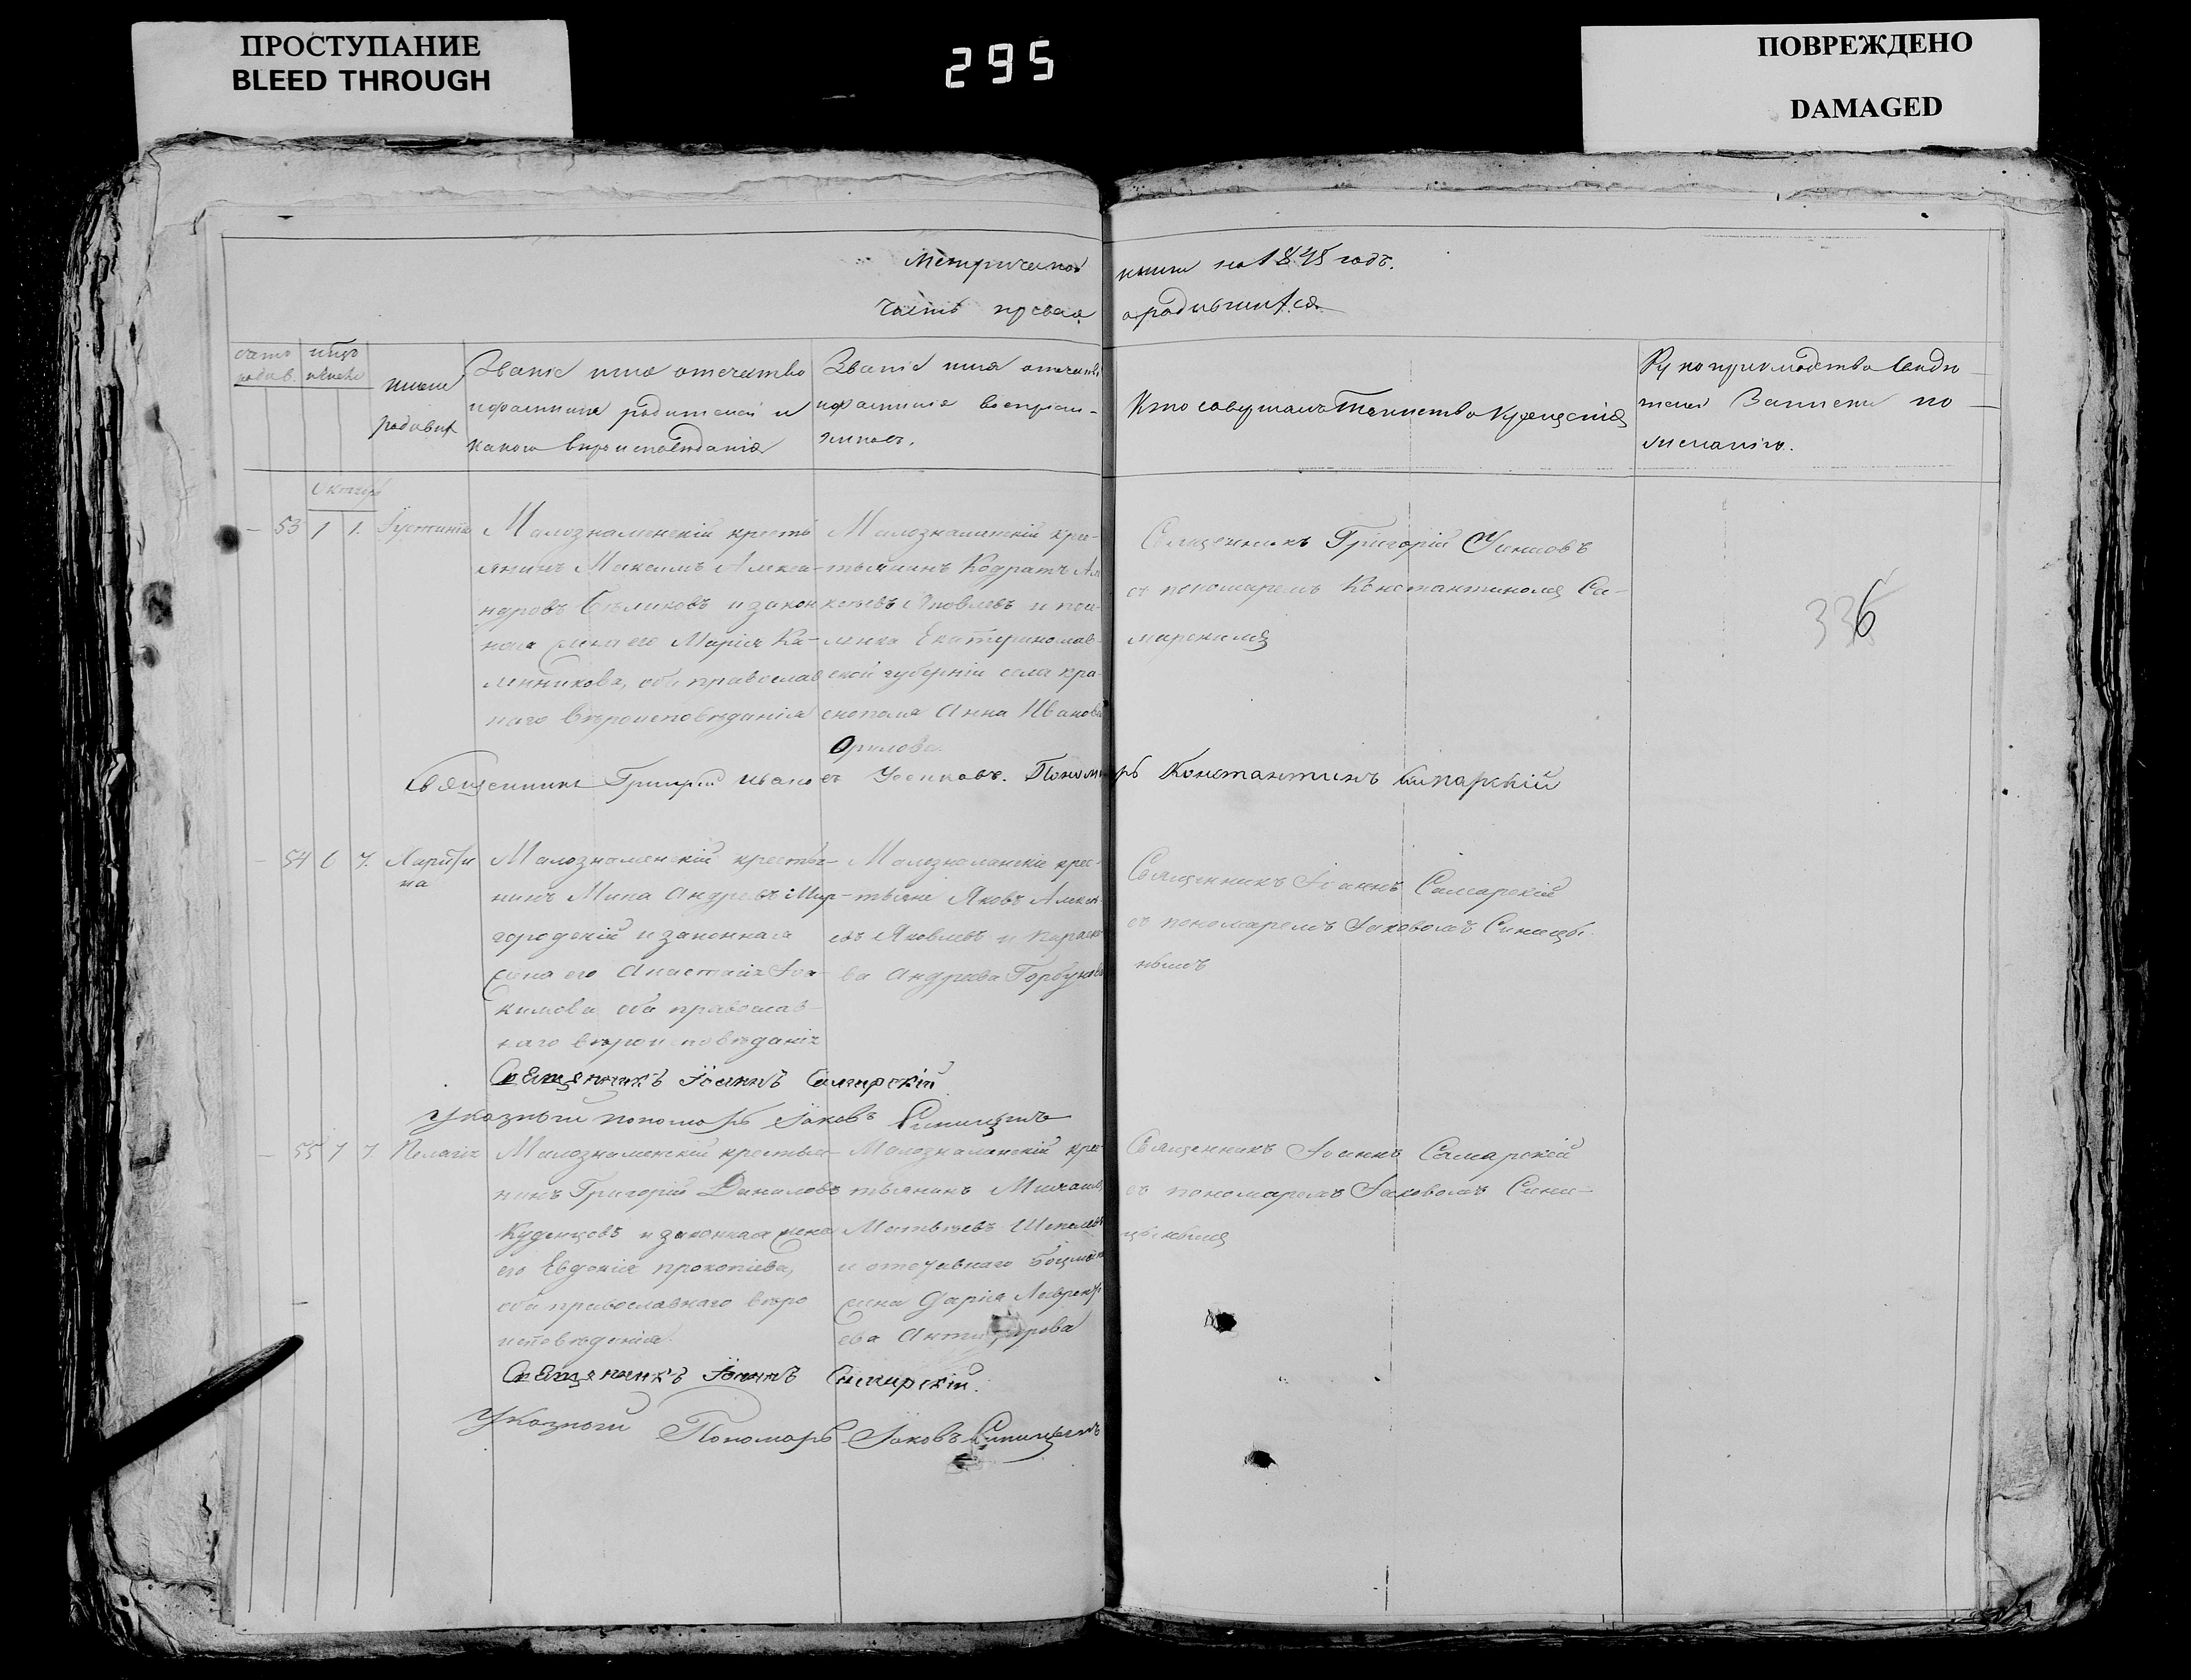 ПРОСТУПАНИЕ
BLEED THROUGH
295
ПОВРЕЖДЕНО
DAMAGED
книги на 1845 годъ.
часть первая
о родившихся
имена
родивш
Званіе имя отечество
и фамилия родителей и
какого вѣроисповѣданія
Званіе имя отечество
и фамилия воспріем-
никовъ.
Кто совершалъ таинство крещенія
Рукоприкладство свидѣ
телей записи по
желанію.
53 1 1. Іустинія
Малознаменскій кресть
янинъ Максимъ Алекса-
ндровъ Бѣликовъ и закон
ная жена его Марія Ка-
линникова, оба православ
наго вѣроисповѣданія
Малознаменскій крес-
тьянинъ Кодратъ Ал
ексѣевъ Яковлевъ и
Екатеринослав-
ской губерніи села кра
снополя Анна Иванова
Орлова.
Священникъ Григорій
съ пономаремъ Константиномъ Са-
марскимъ
336
Священникъ Григорій Ивановъ Усенковъ. Пономарь Константинъ Самарскій
54 6 7. Харити
на
Малознаменскій крестья-
нинъ Мина Андреевъ Мир-
городскій и законная
жена его Анастасія Іоа-
кимова оба православ-
наго вѣроисповѣданія
Малознаменскіе крес-
тьяне Яковъ Алексѣ-
евъ Яковлевъ и Параске-
ва Андреева Горбунова
Священникъ Іоаннъ Самарскій
съ пономаремъ Іаковомъ Синицы-
нымъ
Священникъ Іоаннъ Самарскій
Указный пономарь Іаковъ Синицынъ
55 7 7 Пелагія
Малознаменскій крестья-
нинъ Григорій Даниловъ
Кузнецовъ и законная жена
его Евдокія Прокопіева,
оба православнаго вѣро
исповѣданія
Малознаменскій крес-
тьянинъ Михаилъ
Матвѣевъ
и отставнаго боцмана
жена Дарія Лаврентi
ева
Священникъ Іоаннъ Самарскій
съ пономаремъ Іаковомъ Сини-
цынымъ
Священникъ Іоаннъ Самарскій.
Указный Пономарь Іаковъ Синицынъ